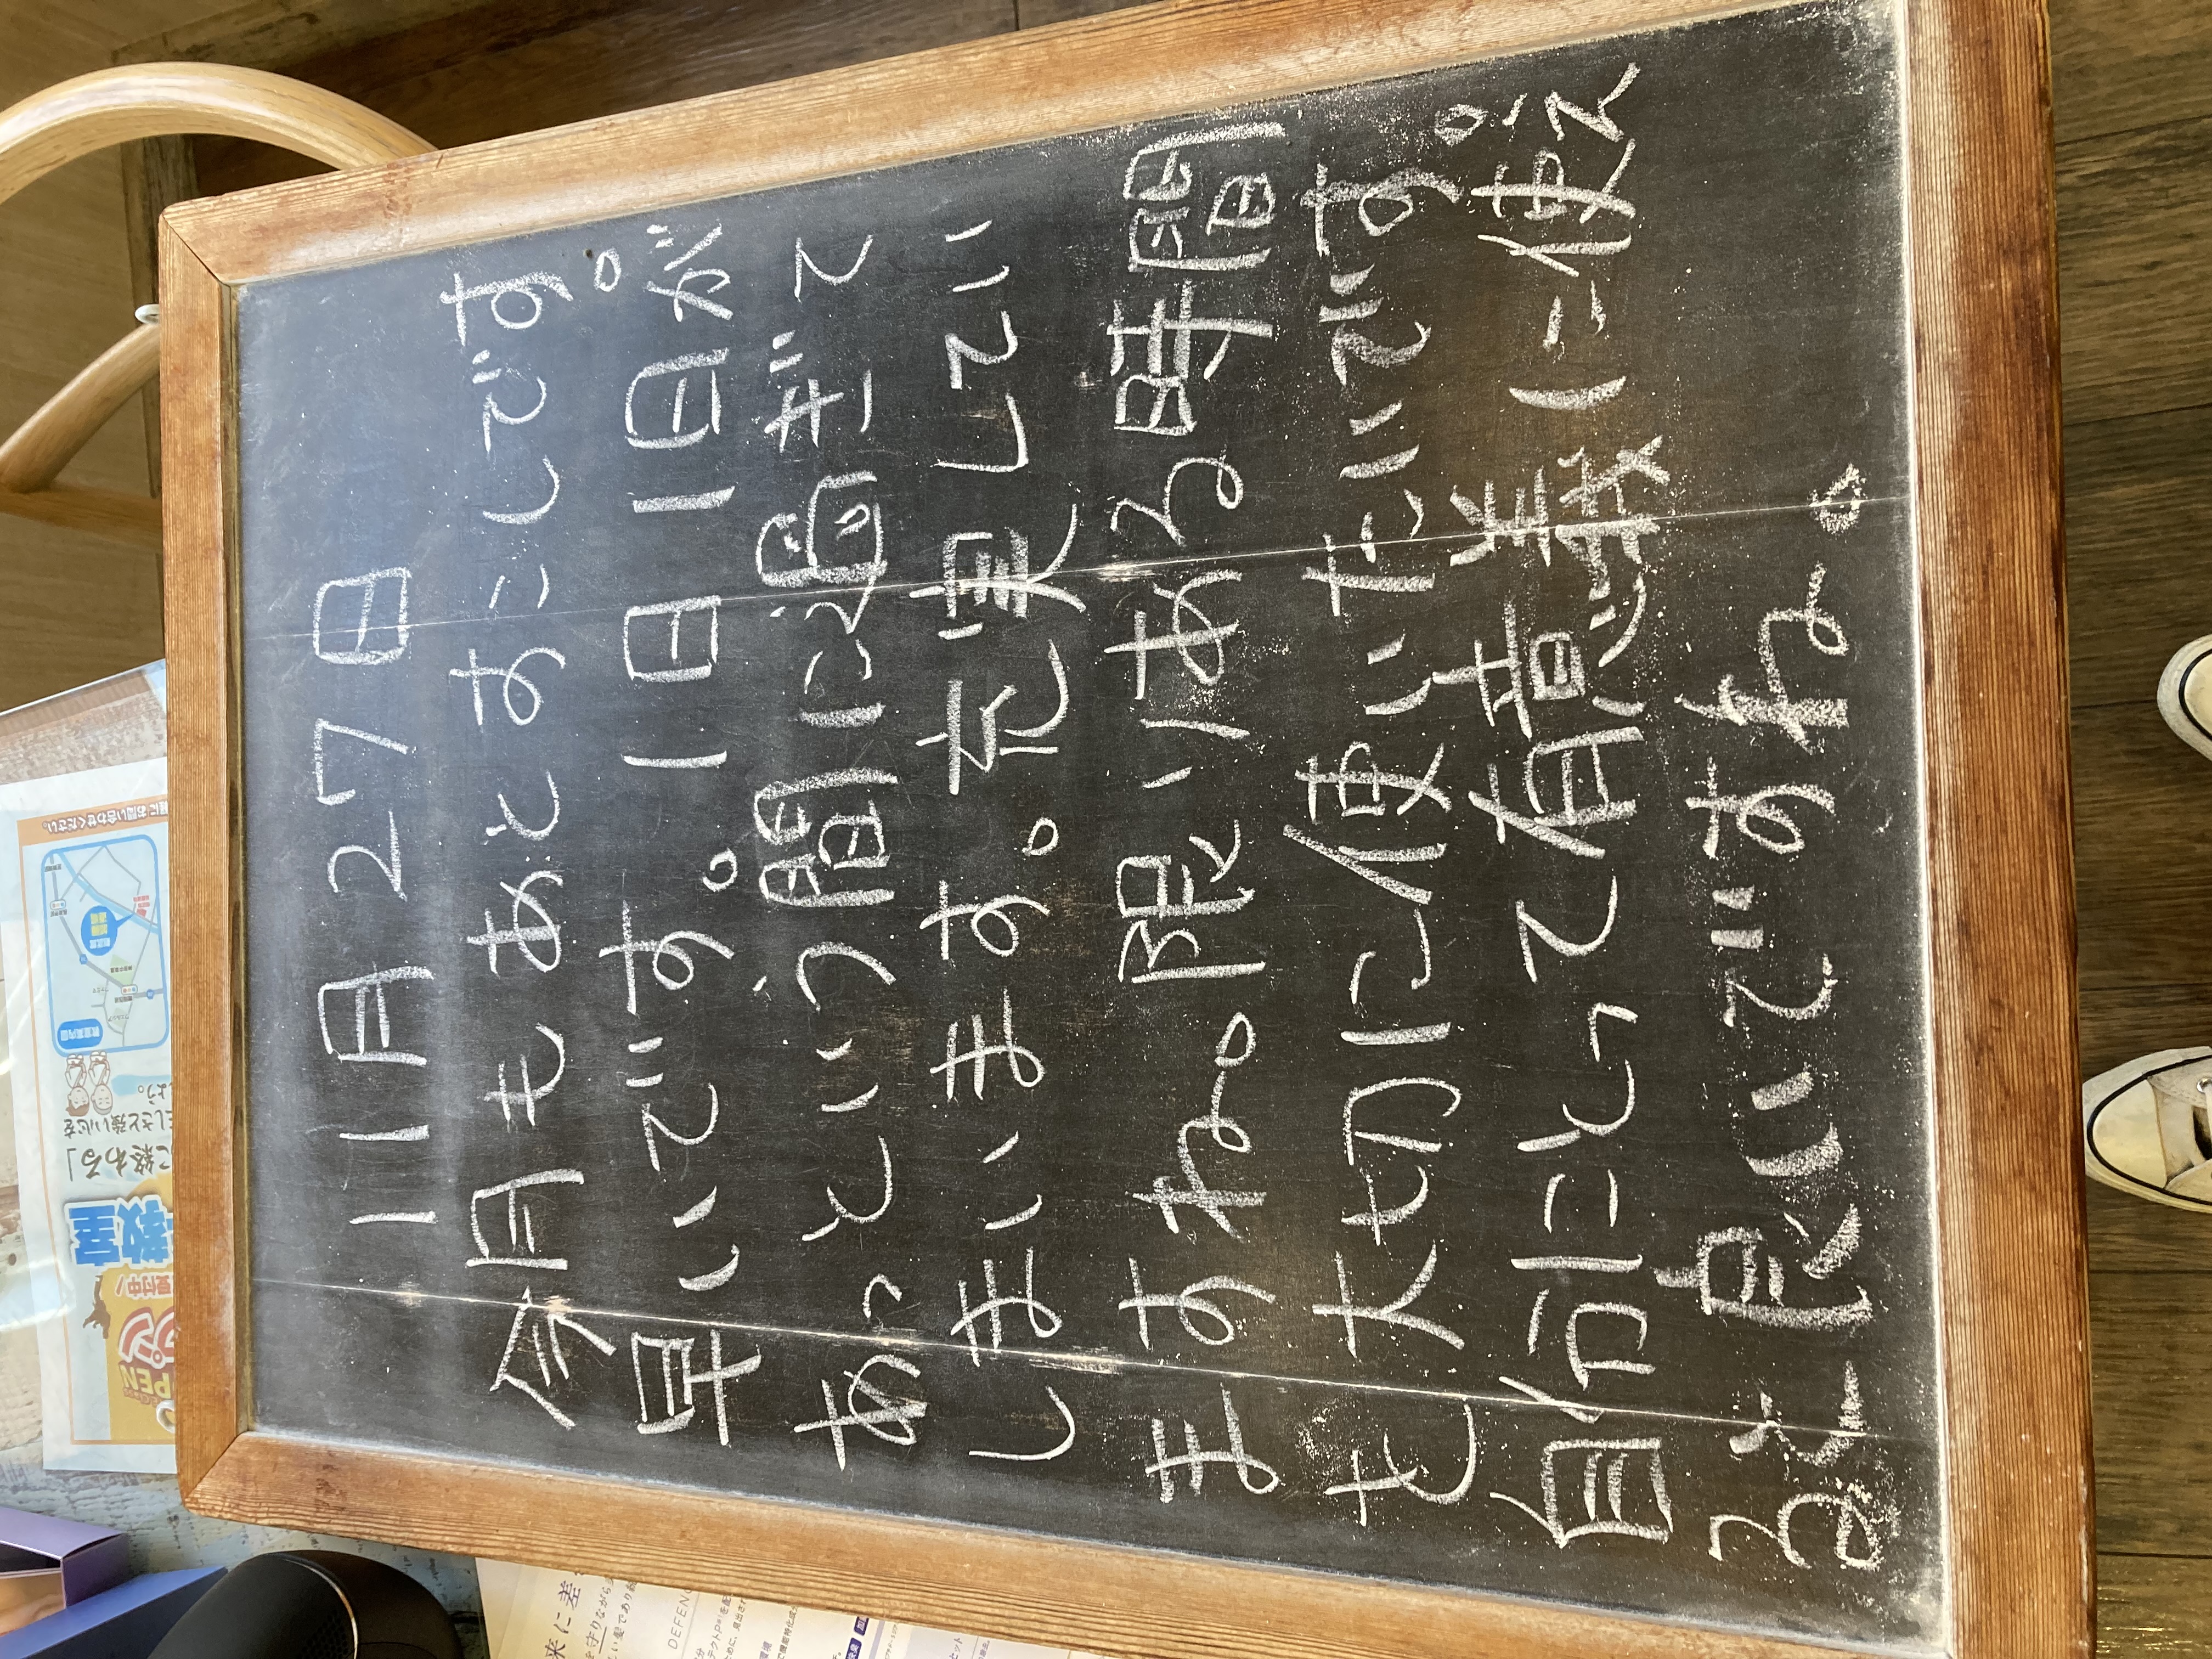 11月27日
今月もあとすこしです。
早いです。1日1日が
あっという間に過ぎて
しまいます。充実してい
ますね。限りある時間
を大切に使いたいです。
自分にとって有意義に使え
ると良いですね。
教室
に終わる」
教室案内図